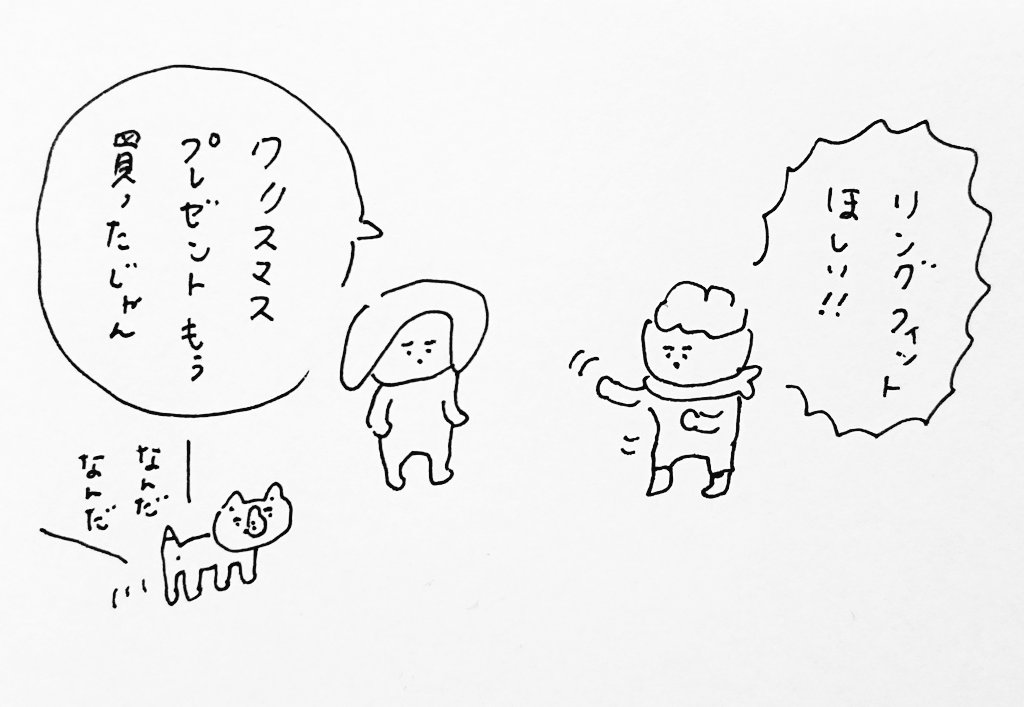 リングフィット
ほしい!!
クリスマス
プレゼントもう
買ったじゃん
なんだ
なんだ